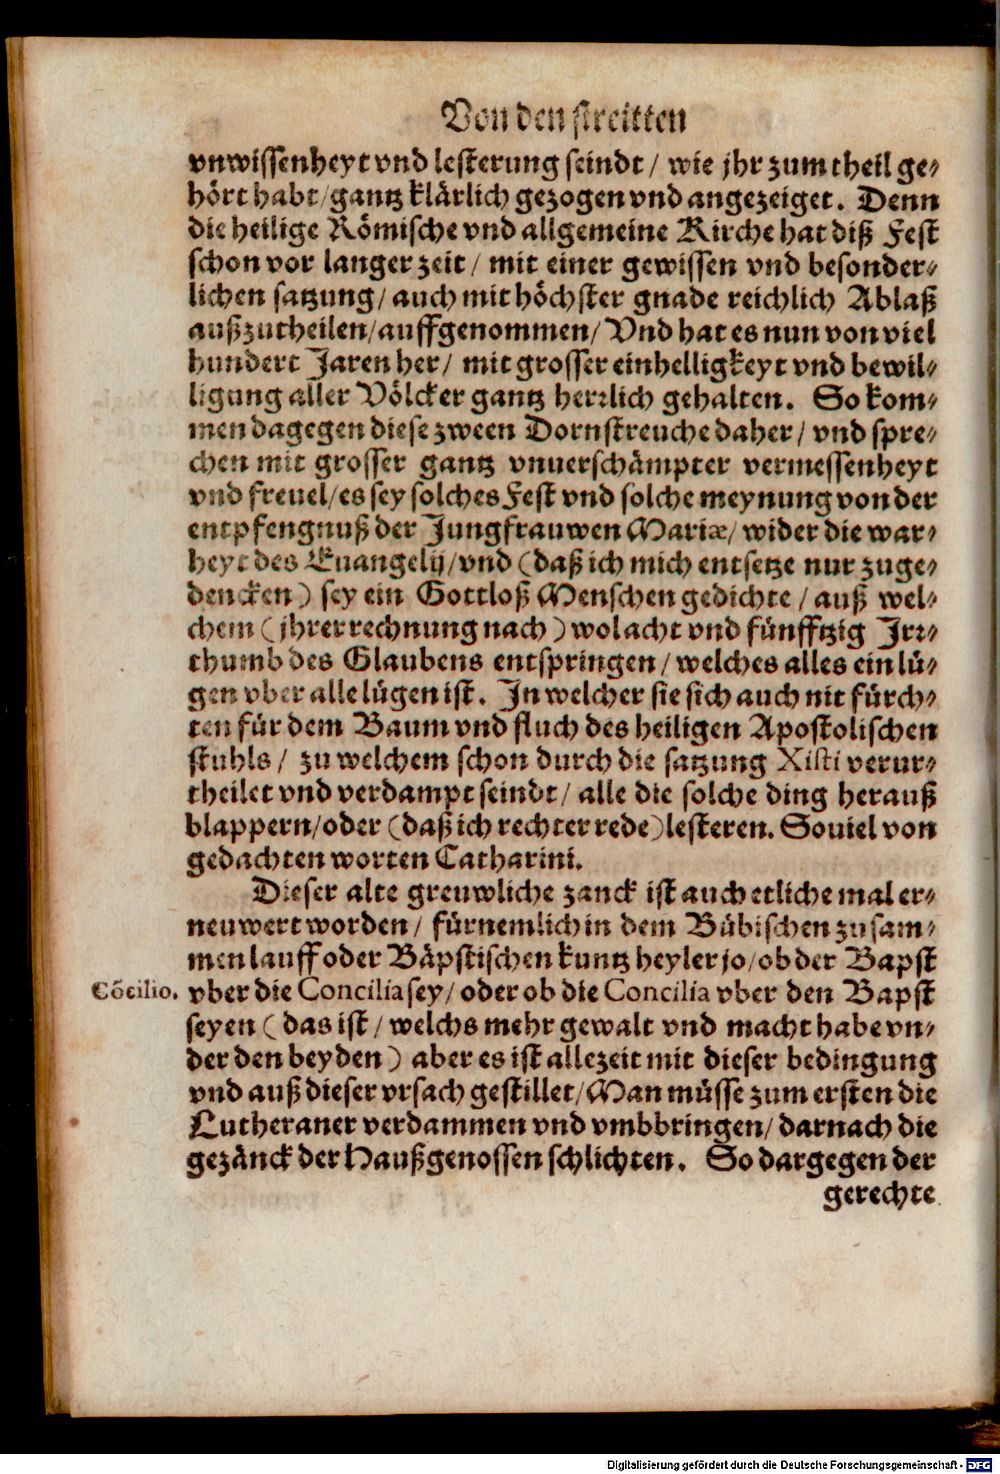 Von den streitten
vnwissenheyt vnd lesterung seindt / wie jhr zum theil ge-
hört habt / gantz klärlich gezogen vnd angezeiget. Denn
die heilige Römische vnd allgemeine Kirche hat diß Fest
schon vor langer zeit / mit einer gewissen vnd besonder-
lichen satzung / auch mit höchster gnade reichlich Ablaß
außzutheilen / auffgenommen / Vnd hat es nun von viel
hundert Jaren her / mit grosser einhelligkeyt vnd bewil-
ligung aller Völcker gantz herrlich gehalten. So kom-
men dagegen diese zween Dornstreuche daher / vnd spre-
chen mit grosser gantz vnuerschämpter vermessenheyt
vnd freuel / es sey solches Fest vnd solche meynung von der
entpfengnuß der Jungfrauwen Mariæ / wider die war-
heyt des Euangelij / vnd (daß ich mich entsetze nur zuge-
dencken) sey ein Gottloß Menschen gedichte / auß wel-
chem (jhrer rechnung nach) wol acht vnd fünfftzig Irr-
thumb des Glaubens entspringen / welches alles ein lü-
gen vber alle lügen ist. In welcher sie sich auch nit fürch-
ten für dem Baum vnd fluch des heiligen Apostolischen
stuhls / zu welchem schon durch die satzung Xisti verur-
theilet vnd verdampt seindt / alle die solche ding herauß
blappern / oder (daß ich rechter rede) lesteren. Souiel von
gedachten worten Catharini.
Dieser alte greuwliche zanck ist auch etliche mal er-
neuwert worden / fürnemlich in dem Bübischen zusam-
men lauff oder Bäpstischen kuntz heyler jo / ob der Bapst
Cõcilio. vber die Concilia sey / oder ob die Concilia vber den Bapst
seyen (das ist / welchs mehr gewalt vnd macht habe vn-
der den beyden) aber es ist allezeit mit dieser bedingung
vnd auß dieser vrsach gestillet / Man müsse zum ersten die
Lutheraner verdammen vnd vmbbringen / darnach die
gezänck der Haußgenossen schlichten. So dargegen der
gerechte
Digitalisierung gefördert durch die Deutsche Forschungsgemeinschaft - DFG